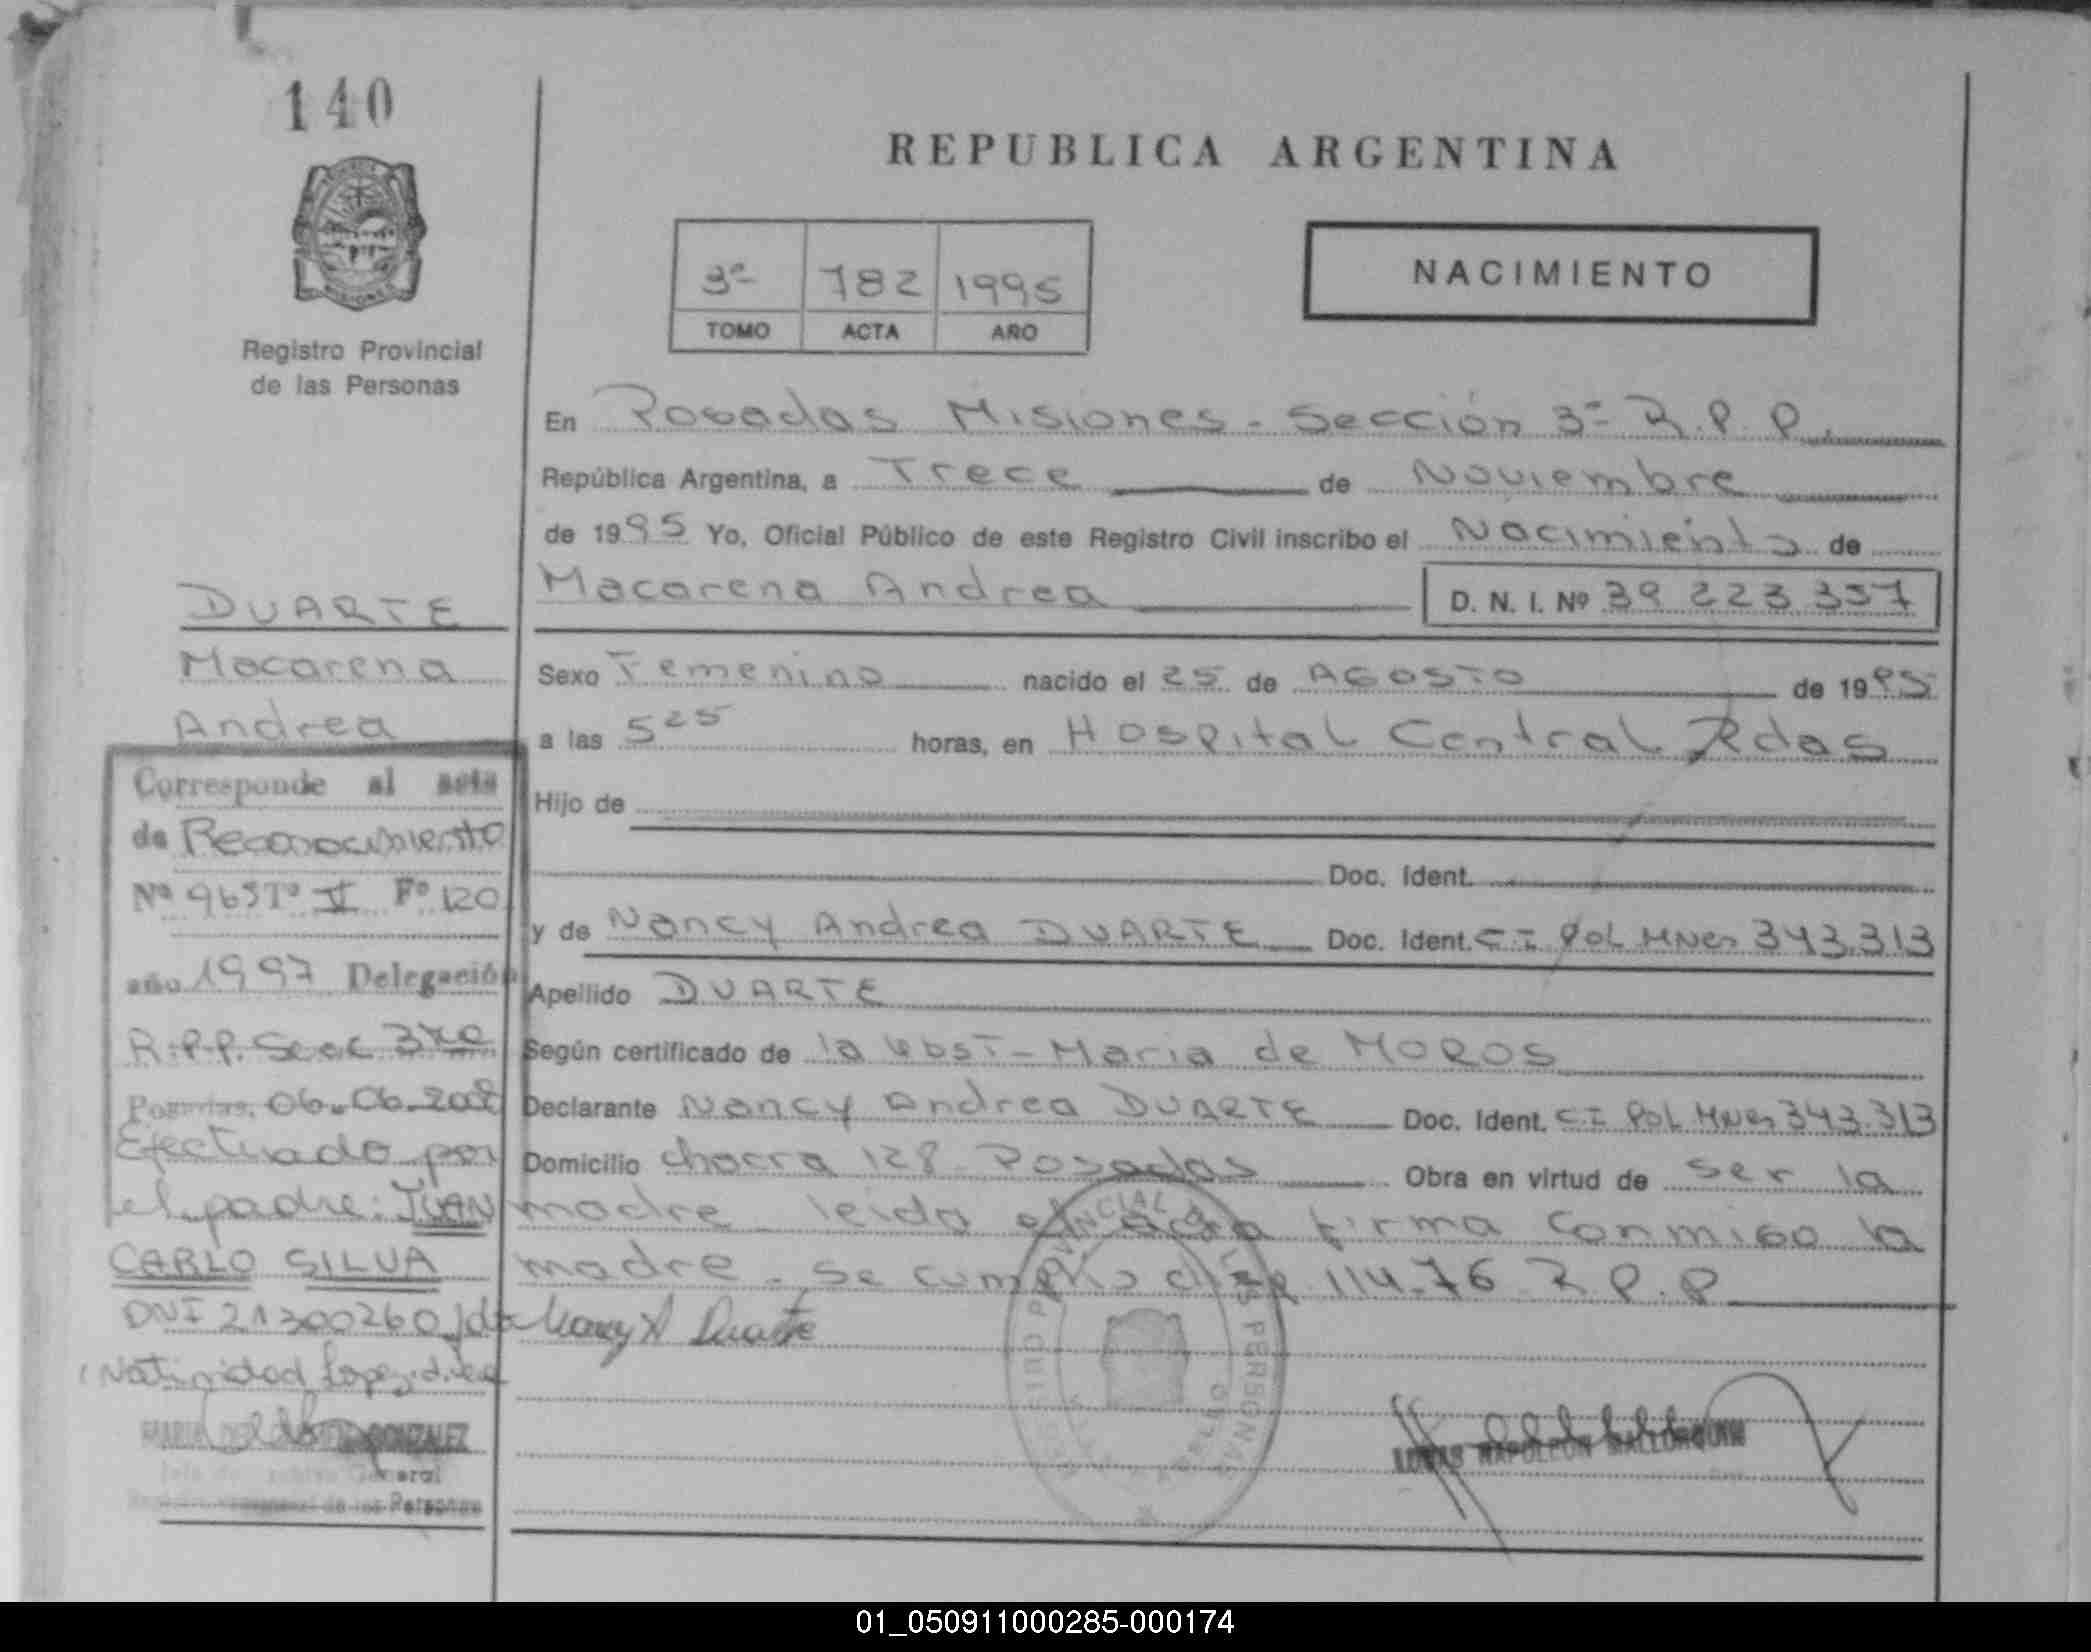 140
REPUBLICA ARGENTINA
MISIONES
Registro Provincial
de las Personas
3ª 782 1995
TOMO ACTA AÑO
NACIMIENTO
En Posadas Misiones - Sección 3ª R.P.P.
República Argentina, a Trece de Noviembre
de 1995 Yo, Oficial Público de este Registro Civil inscribo el Nacimiento de
Macarena Andrea D. N. I. Nº 39 223 357
Sexo Femenino nacido el 25 de AGOSTO de 1995
a las 5 25 horas, en Hospital Central Pdas
Hijo de
Doc. Ident.
y de Nancy Andrea DUARTE Doc. Ident. C.I Pol MNes 343.313
Apellido DUARTE
Según certificado de la Obst - Maria de MOROS
Declarante Nancy Andrea DUARTE Doc. Ident. C.I Pol MNes 343.313
Domicilio chacra 128 - Posadas Obra en virtud de ser la
madre - leida el acta firma conmigo la
madre - Se cumplio disp 114-76 R.P.P
Nancy A Duarte
REGISTRO PROVINCIAL DE LAS PERSONAS
LUCAS NAPOLEON MALLORQUIN
DUARTE
Macarena
Andrea
Corresponde al acta
de Reconocimiento
Nº 965 Tº V Fº 120
año 1997 Delegación
R.P.P. Secc 3ra
Posadas, 06-06-2008
Efectuado por
el padre: JUAN
CARLO SILVA
DNI 21300260
Natividad Lopez
MARIA GONZALEZ
Jefe de Archivo General
Registro Provincial de las Personas
01_050911000285-000174